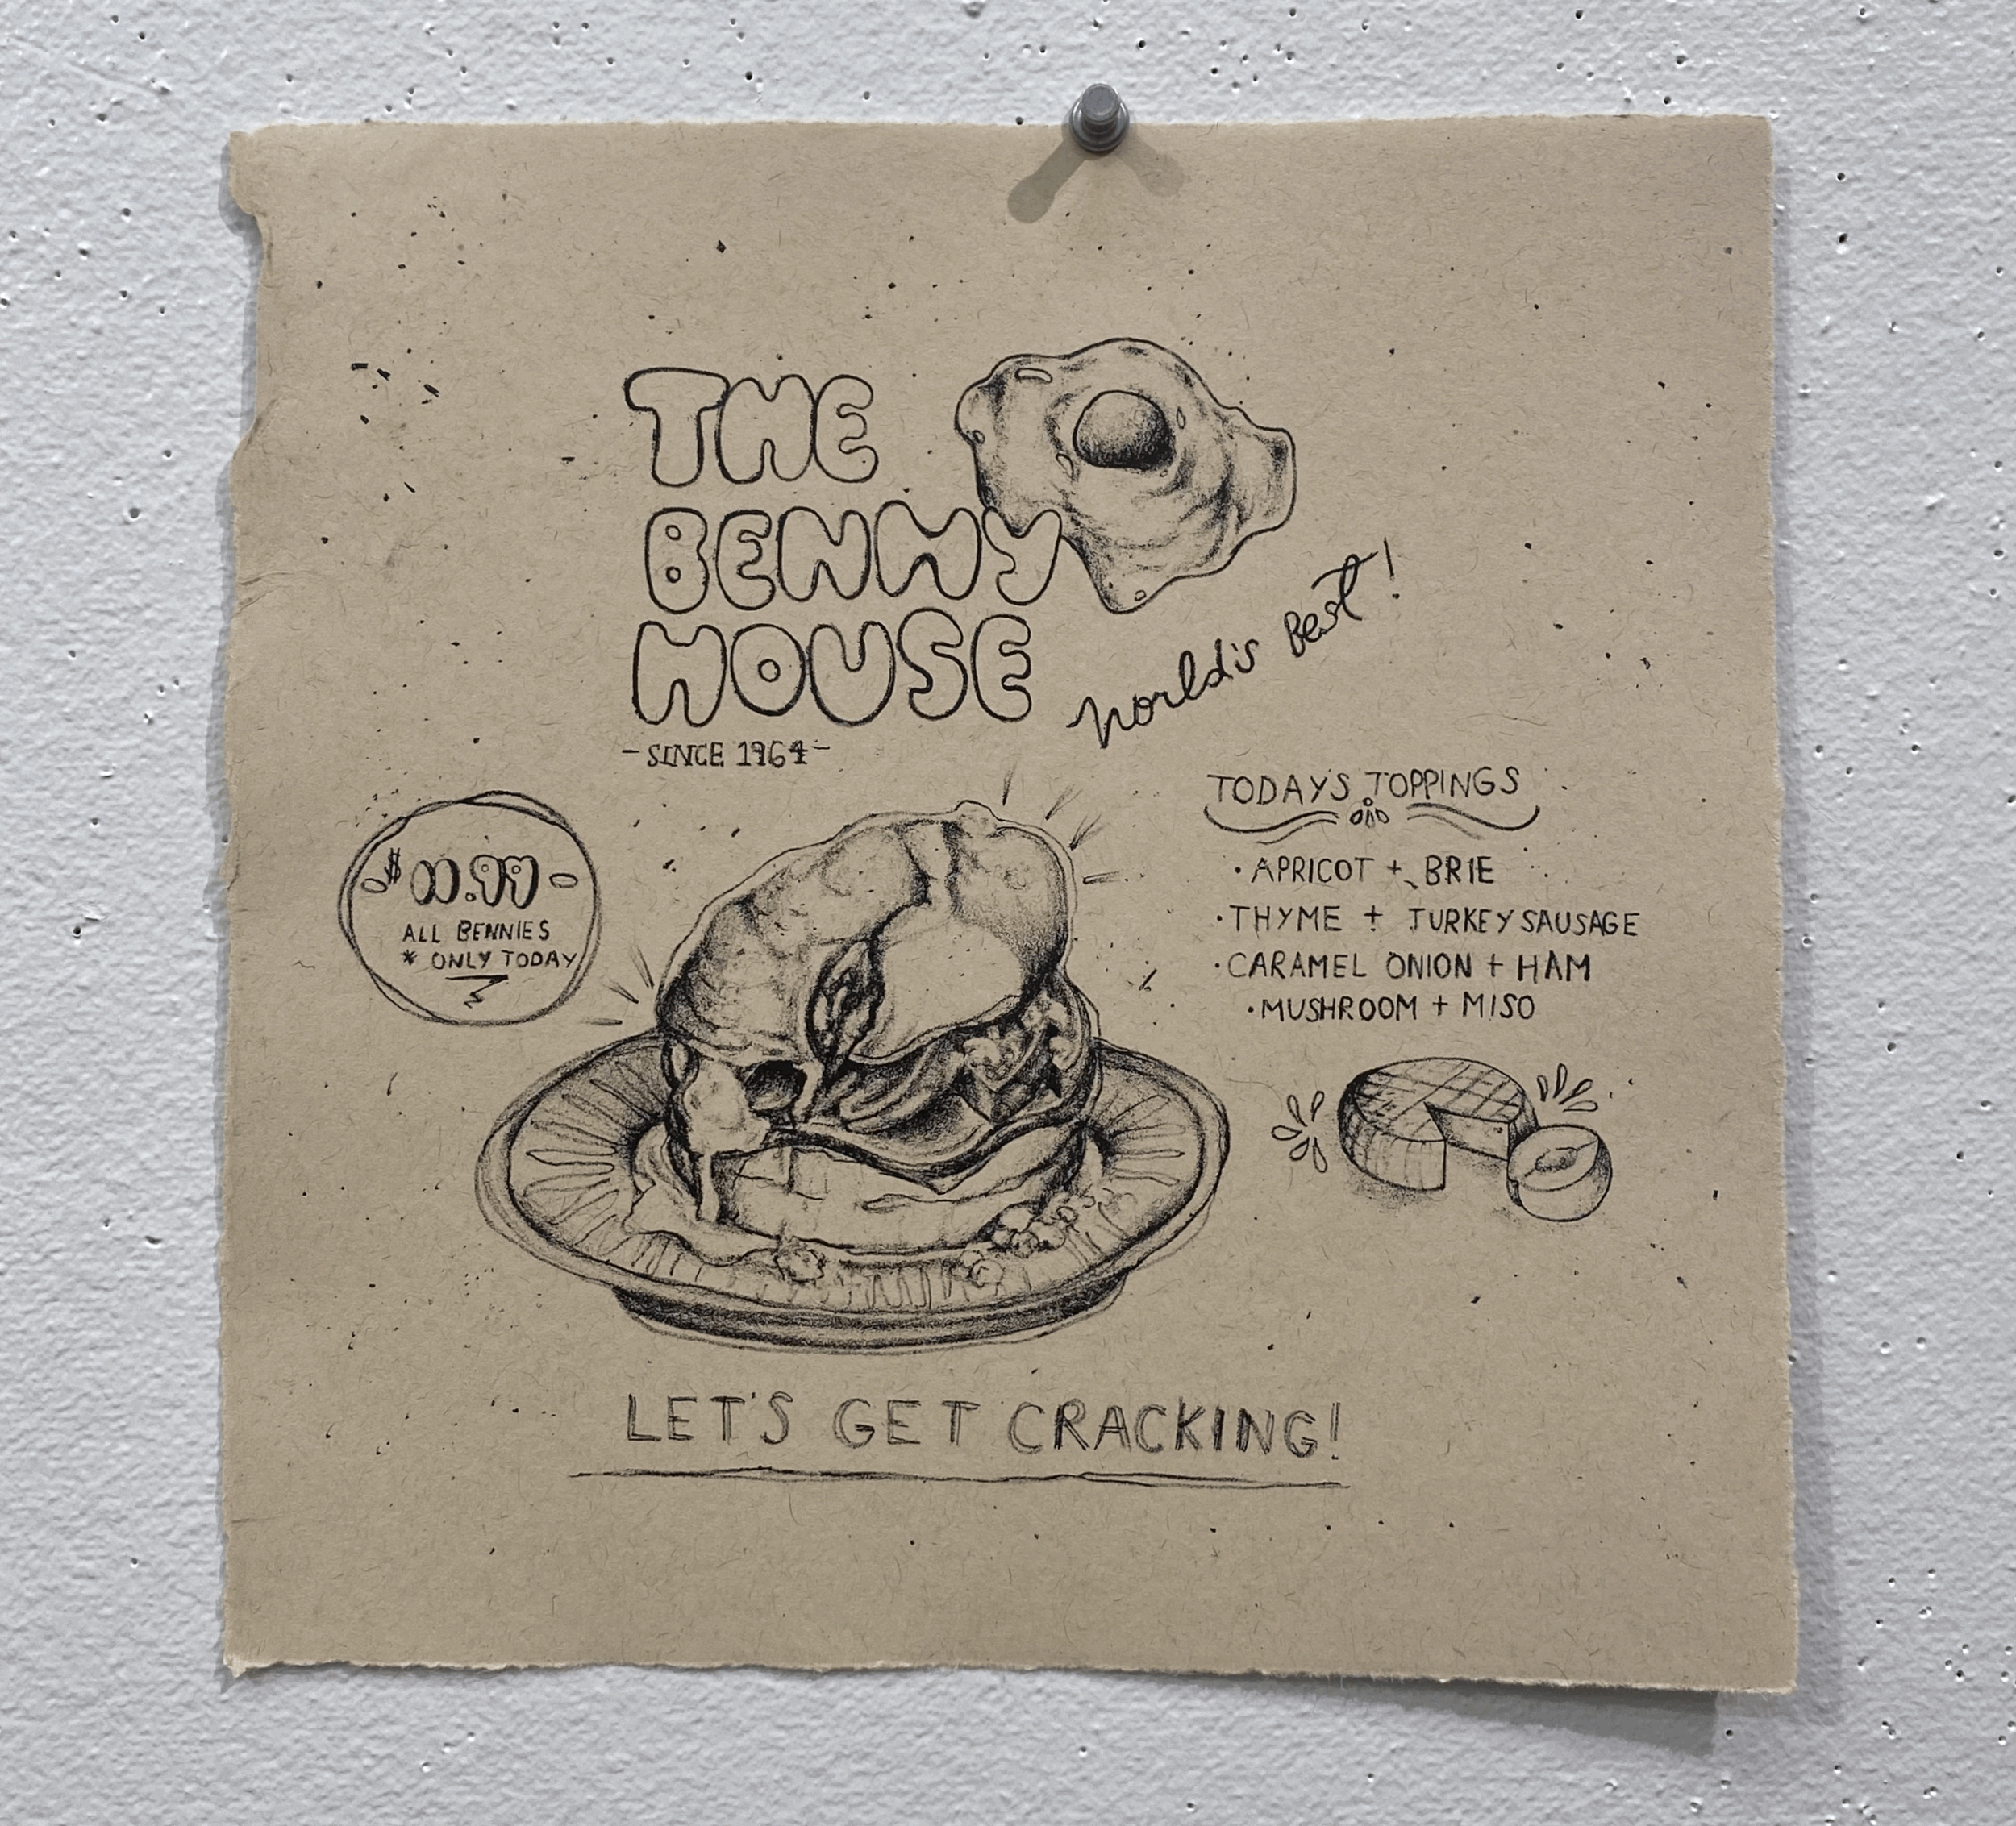 THE
BENNY
HOUSE
World's Best!
- SINCE 1964 -
TODAY'S TOPPINGS
· APRICOT + BRIE
· THYME + TURKEY SAUSAGE
· CARAMEL ONION + HAM
· MUSHROOM + MISO
- $11.99 -
ALL BENNIES
* ONLY TODAY
LET'S GET CRACKING!